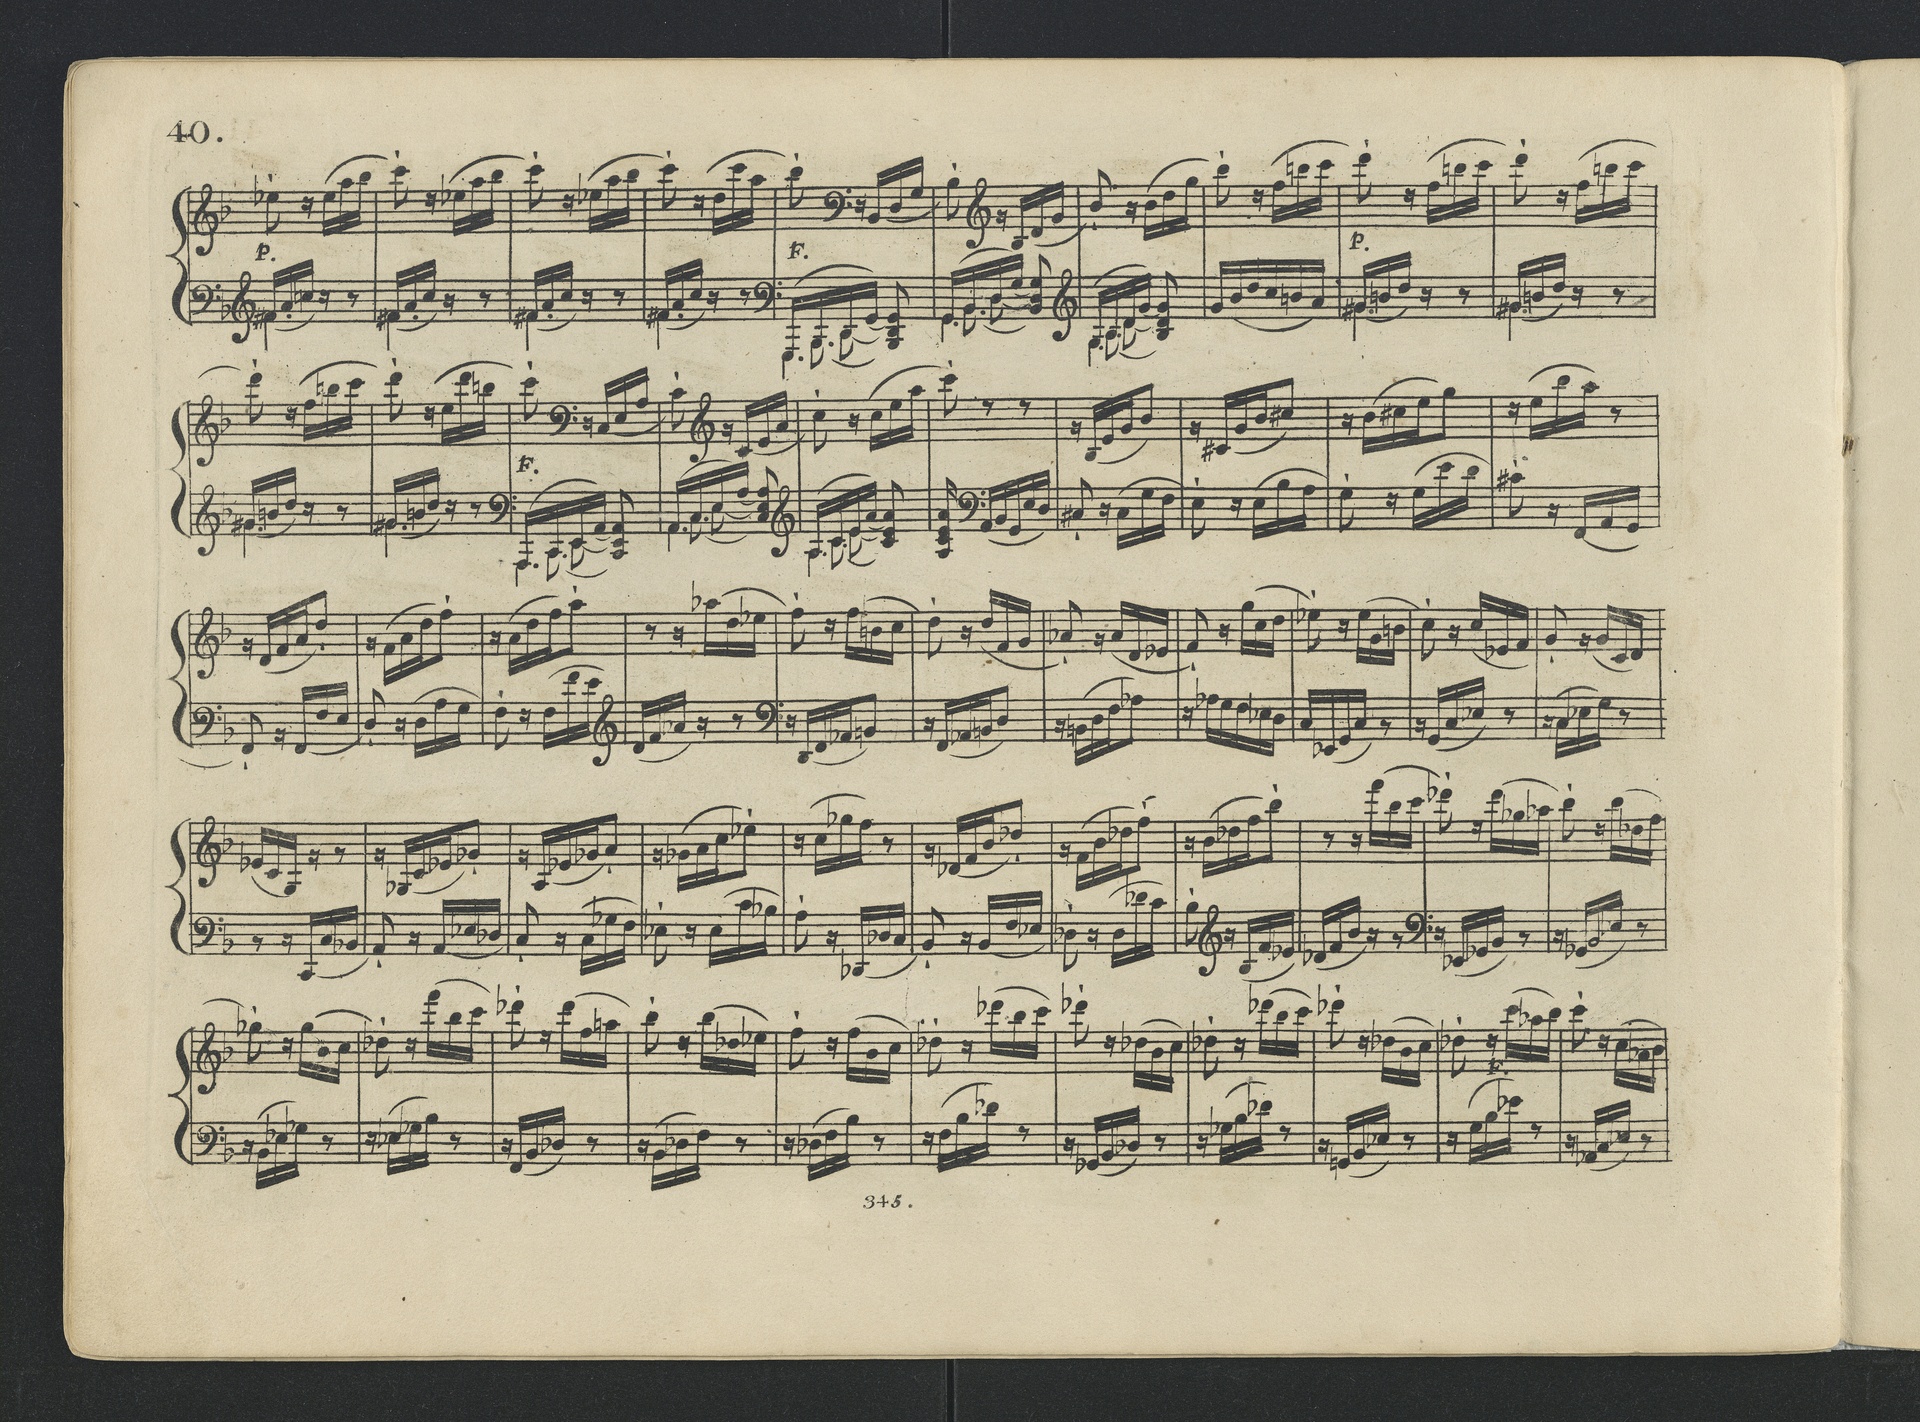 40.
P. F. P.
F.
F.
345.